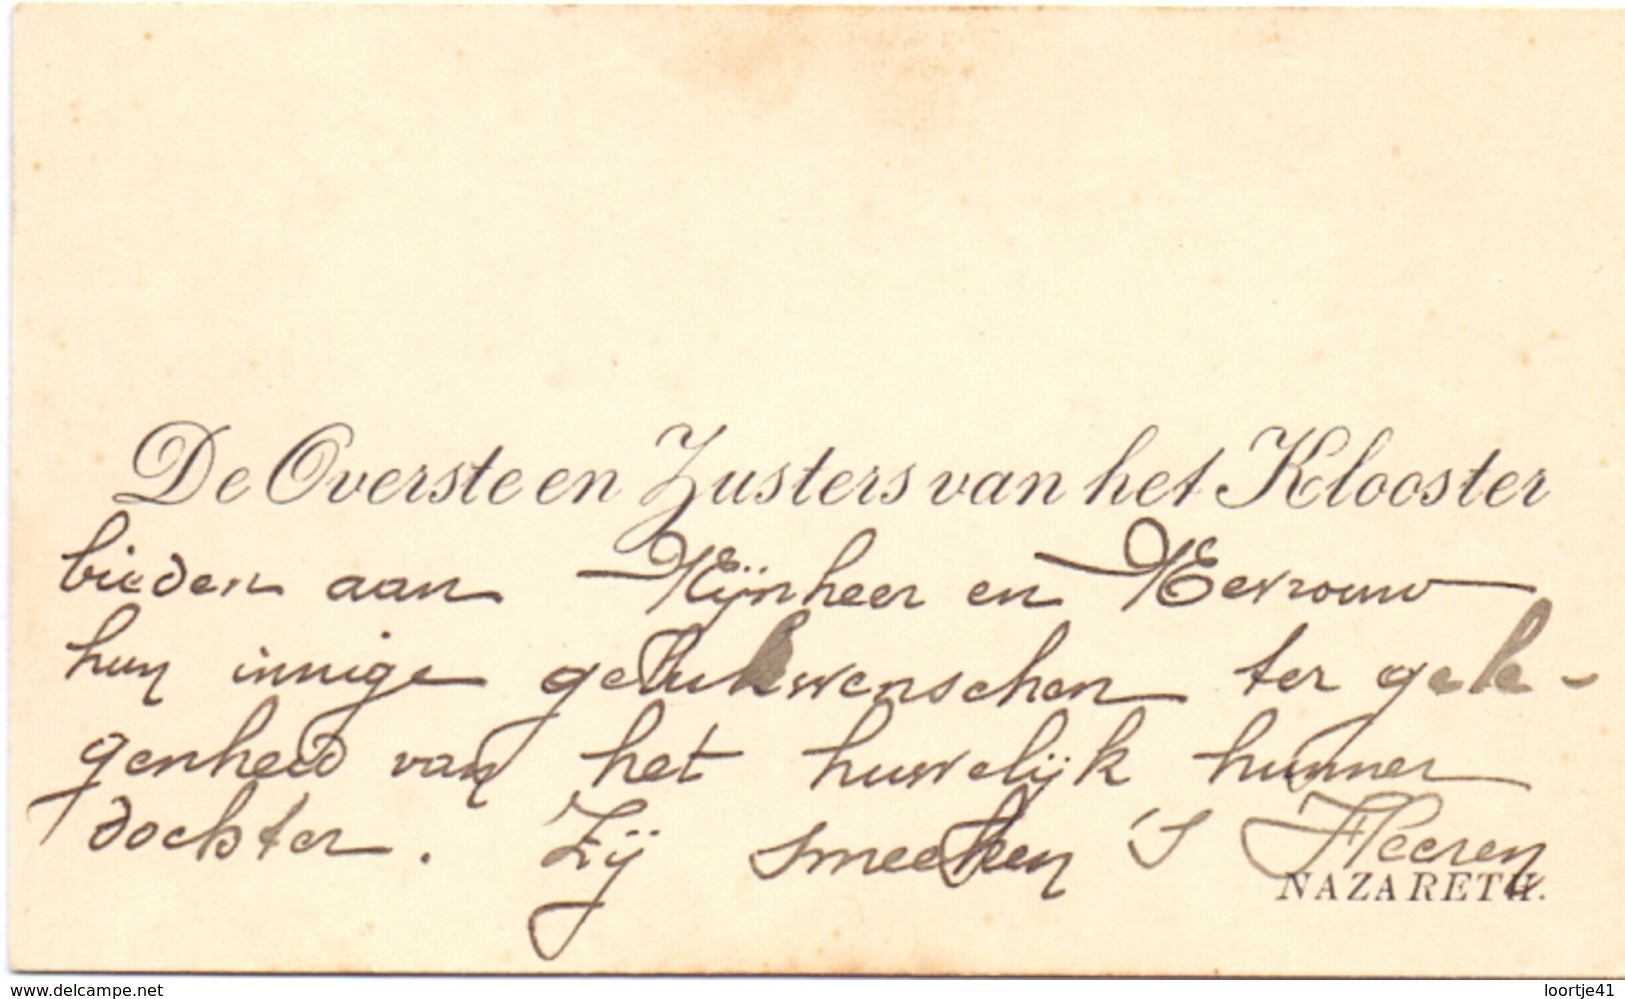 De Overste en Zusters van het Klooster
bieden aan Mijnheer en Mevrouw
hun innige gelukwenschen ter gele-
genheid van het huwelijk hunner
dochter. Zij smeeken 's Heeren
NAZARETH.
www.delcampe.net
loortje41